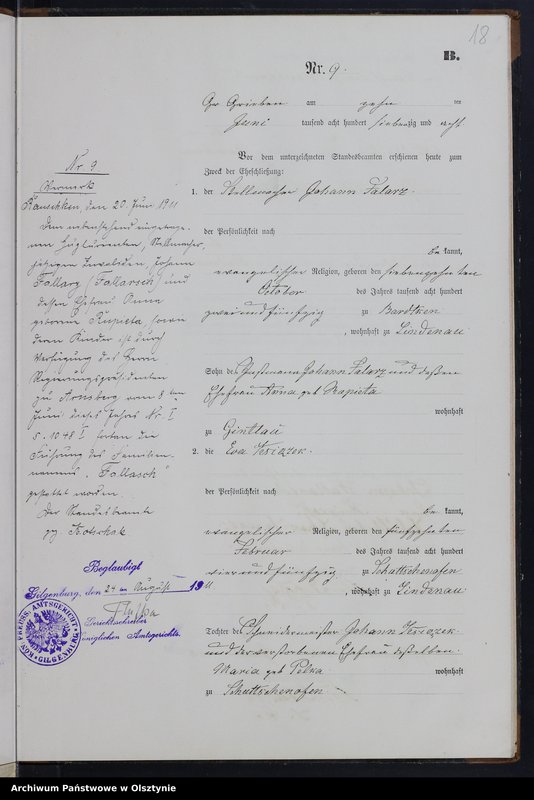 18
B.
Nr. 9.
Gr Grieben am zehn ten
Juni tausend acht hundert siebenzig und acht
Vor dem unterzeichneten Standesbeamten erschienen heute zum
Zweck der Eheschließung:
1. der Stellmacher Johann Falarz
der Persönlichkeit nach
be kannt,
evangelischer Religion, geboren den siebenzehnten
October des Jahres tausend acht hundert
zweiundfünfzig zu Bardtken
, wohnhaft zu Lindenau
Sohn des Johann Falarz und deßen
Ehefrau Anna geb Rapieta
wohnhaft
zu Ginttau
2. die Eva
der Persönlichkeit nach
be kannt,
evangelischer Religion, geboren den fünfzehnten
Februar des Jahres tausend acht hundert
vierundfünfzig zu Schuttschenofen
, wohnhaft zu Lindenau
Tochter des Schneidermeister Johann
und der verstorbenen Ehefrau deßelben
Maria geb Pelka wohnhaft
zu Schuttschenofen
Nr. 9
Vermerk
Rauschken, den 20. Juni 1911
Dem nebenstehend eingetrage-
nen Stellmacher,
jetzigen Invaliden, Johann
Fallarz (Fallarsch) und
dessen Ehefrau Anna
geborene Rupieta sowie
deren Kinder ist durch
Verfügung des Herrn
Regierungspräsidenten
zu Arnsberg vom 8 ten
Juni dieses Jahres Nr. I
5. 1048 I fortan die
Führung des Familien-
namens "Fallasch"
gestattet worden.
Der Standesbeamte
gez.
Beglaubigt
Gilgenburg, den 24 ten August 1911
Gerichtsschreiber
Königlichen Amtsgerichts.
KÖN. PREUSS. AMTSGERICHT
GILGENBURG
Archiwum Państwowe w Olsztynie